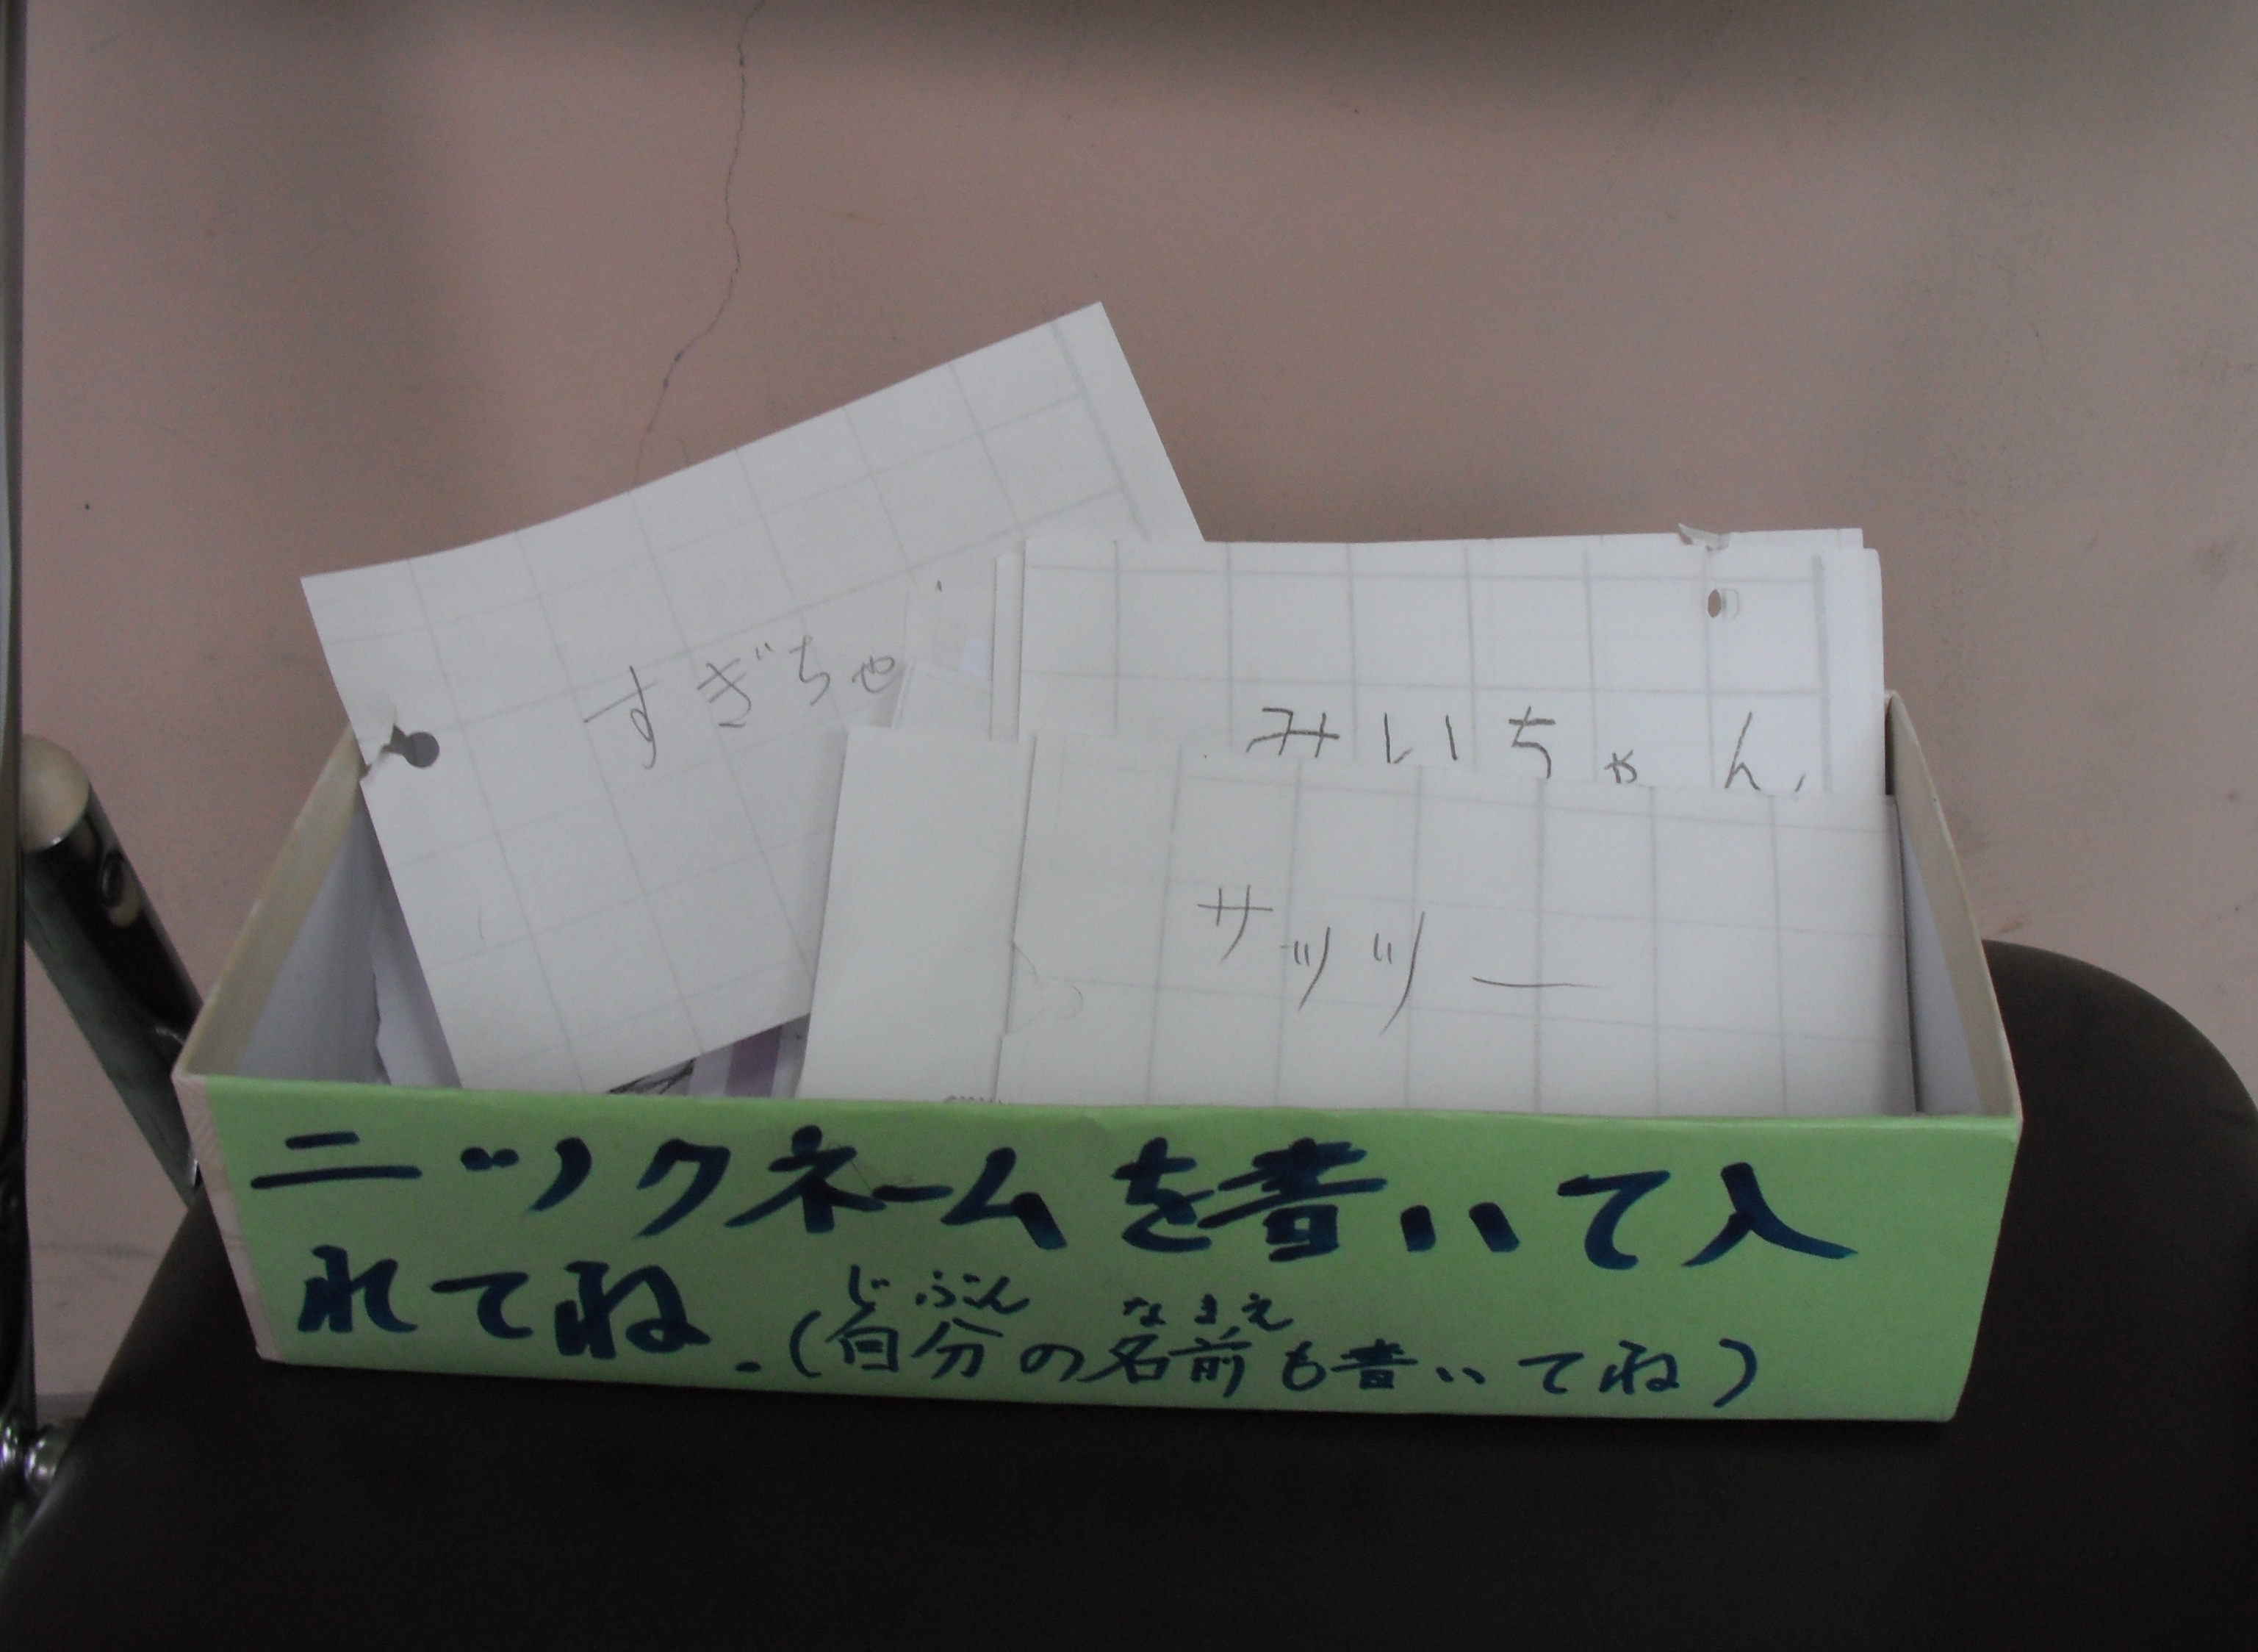 すぎちゃ
みいちゃん
サッツー
ニックネームを書いて入
れてね.(自分の名前も書いてね)
じぶん なまえ